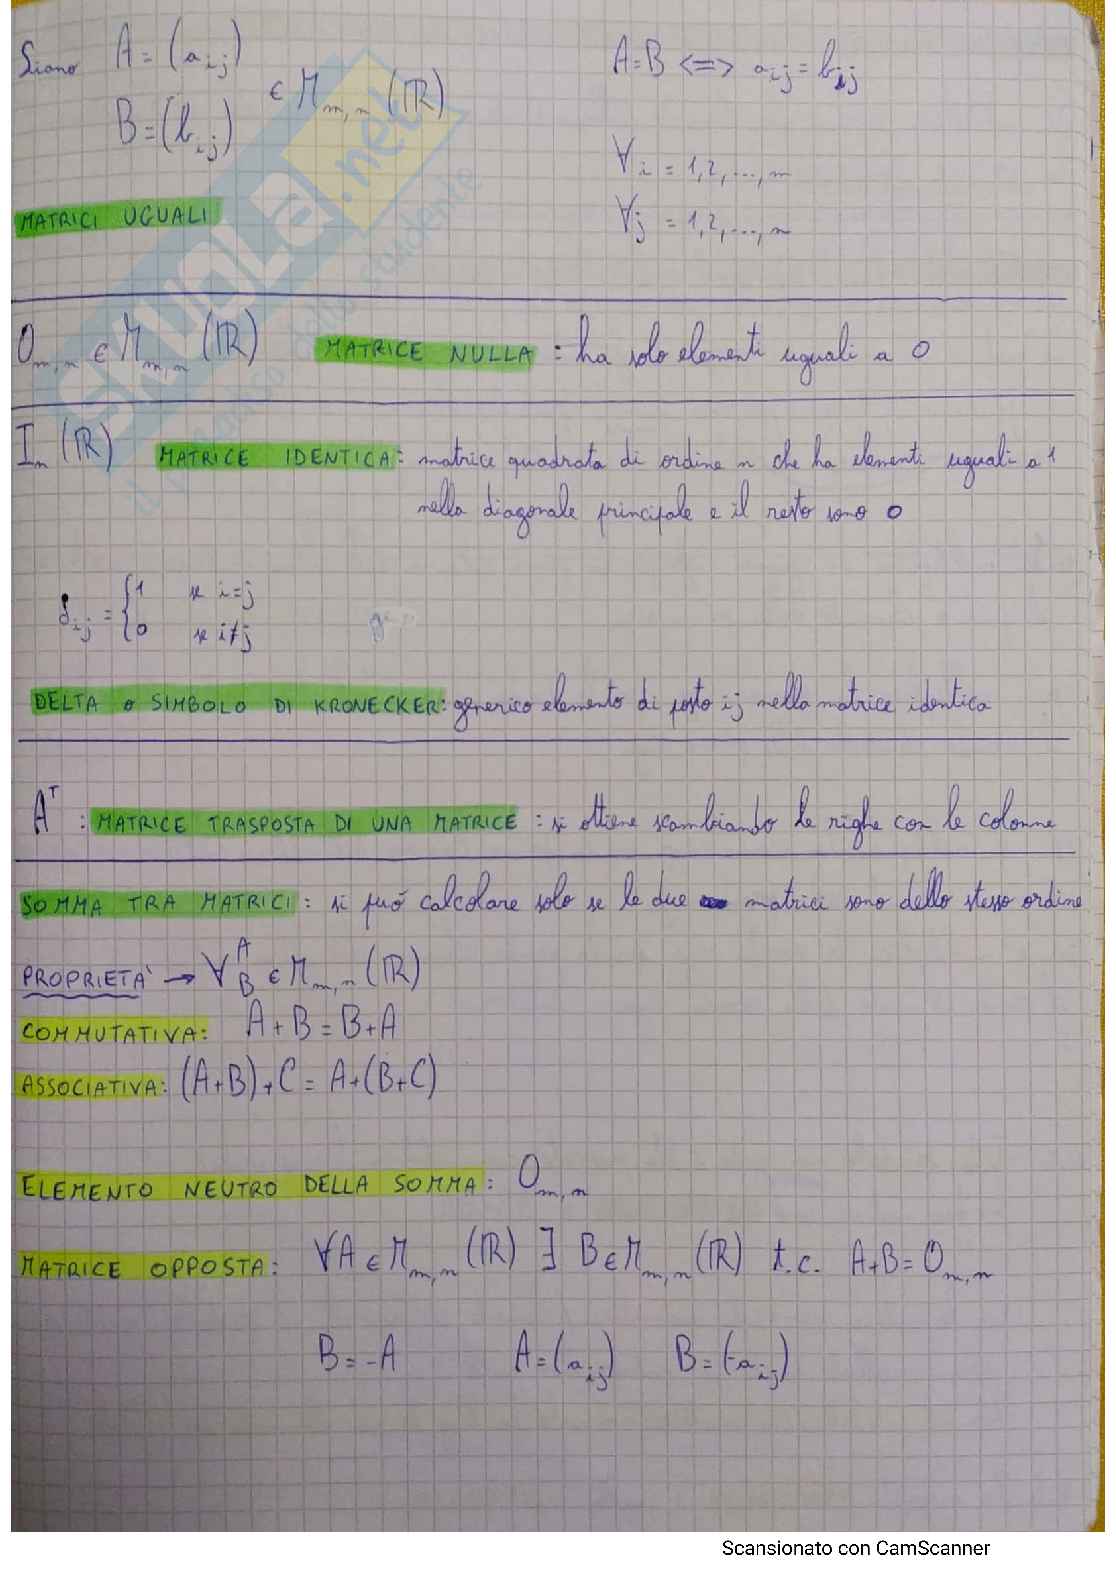 Siano A = (aij)
B = (bij) ∈ Mm,n (ℝ)
A=B <=> aij = bij
∀i = 1,2,...,m
∀j = 1,2,...,n
MATRICI UGUALI
Om,n ∈ Mm,n (ℝ) MATRICE NULLA : ha solo elementi uguali a 0
In (ℝ) MATRICE IDENTICA: matrice quadrata di ordine n che ha elementi uguali a 1
nella diagonale principale e il resto sono 0
δij = { 1 se i=j
0 se i≠j
DELTA o SIMBOLO DI KRONECKER: generico elemento di posto ij nella matrice identica
Aᵀ : MATRICE TRASPOSTA DI UNA MATRICE : si ottiene scambiando le righe con le colonne
SOMMA TRA MATRICI : si può calcolare solo se le due matrici sono dello stesso ordine
PROPRIETA' → ∀ A B ∈ Mm,n (ℝ)
COMMUTATIVA: A+B = B+A
ASSOCIATIVA: (A+B)+C = A+(B+C)
ELEMENTO NEUTRO DELLA SOMMA: Om,n
MATRICE OPPOSTA: ∀A ∈ Mm,n (ℝ) ∃ B ∈ Mm,n (ℝ) t.c. A+B = Om,n
B = -A A = (aij) B = (-aij)
SKUOLA.net
Scansionato con CamScanner